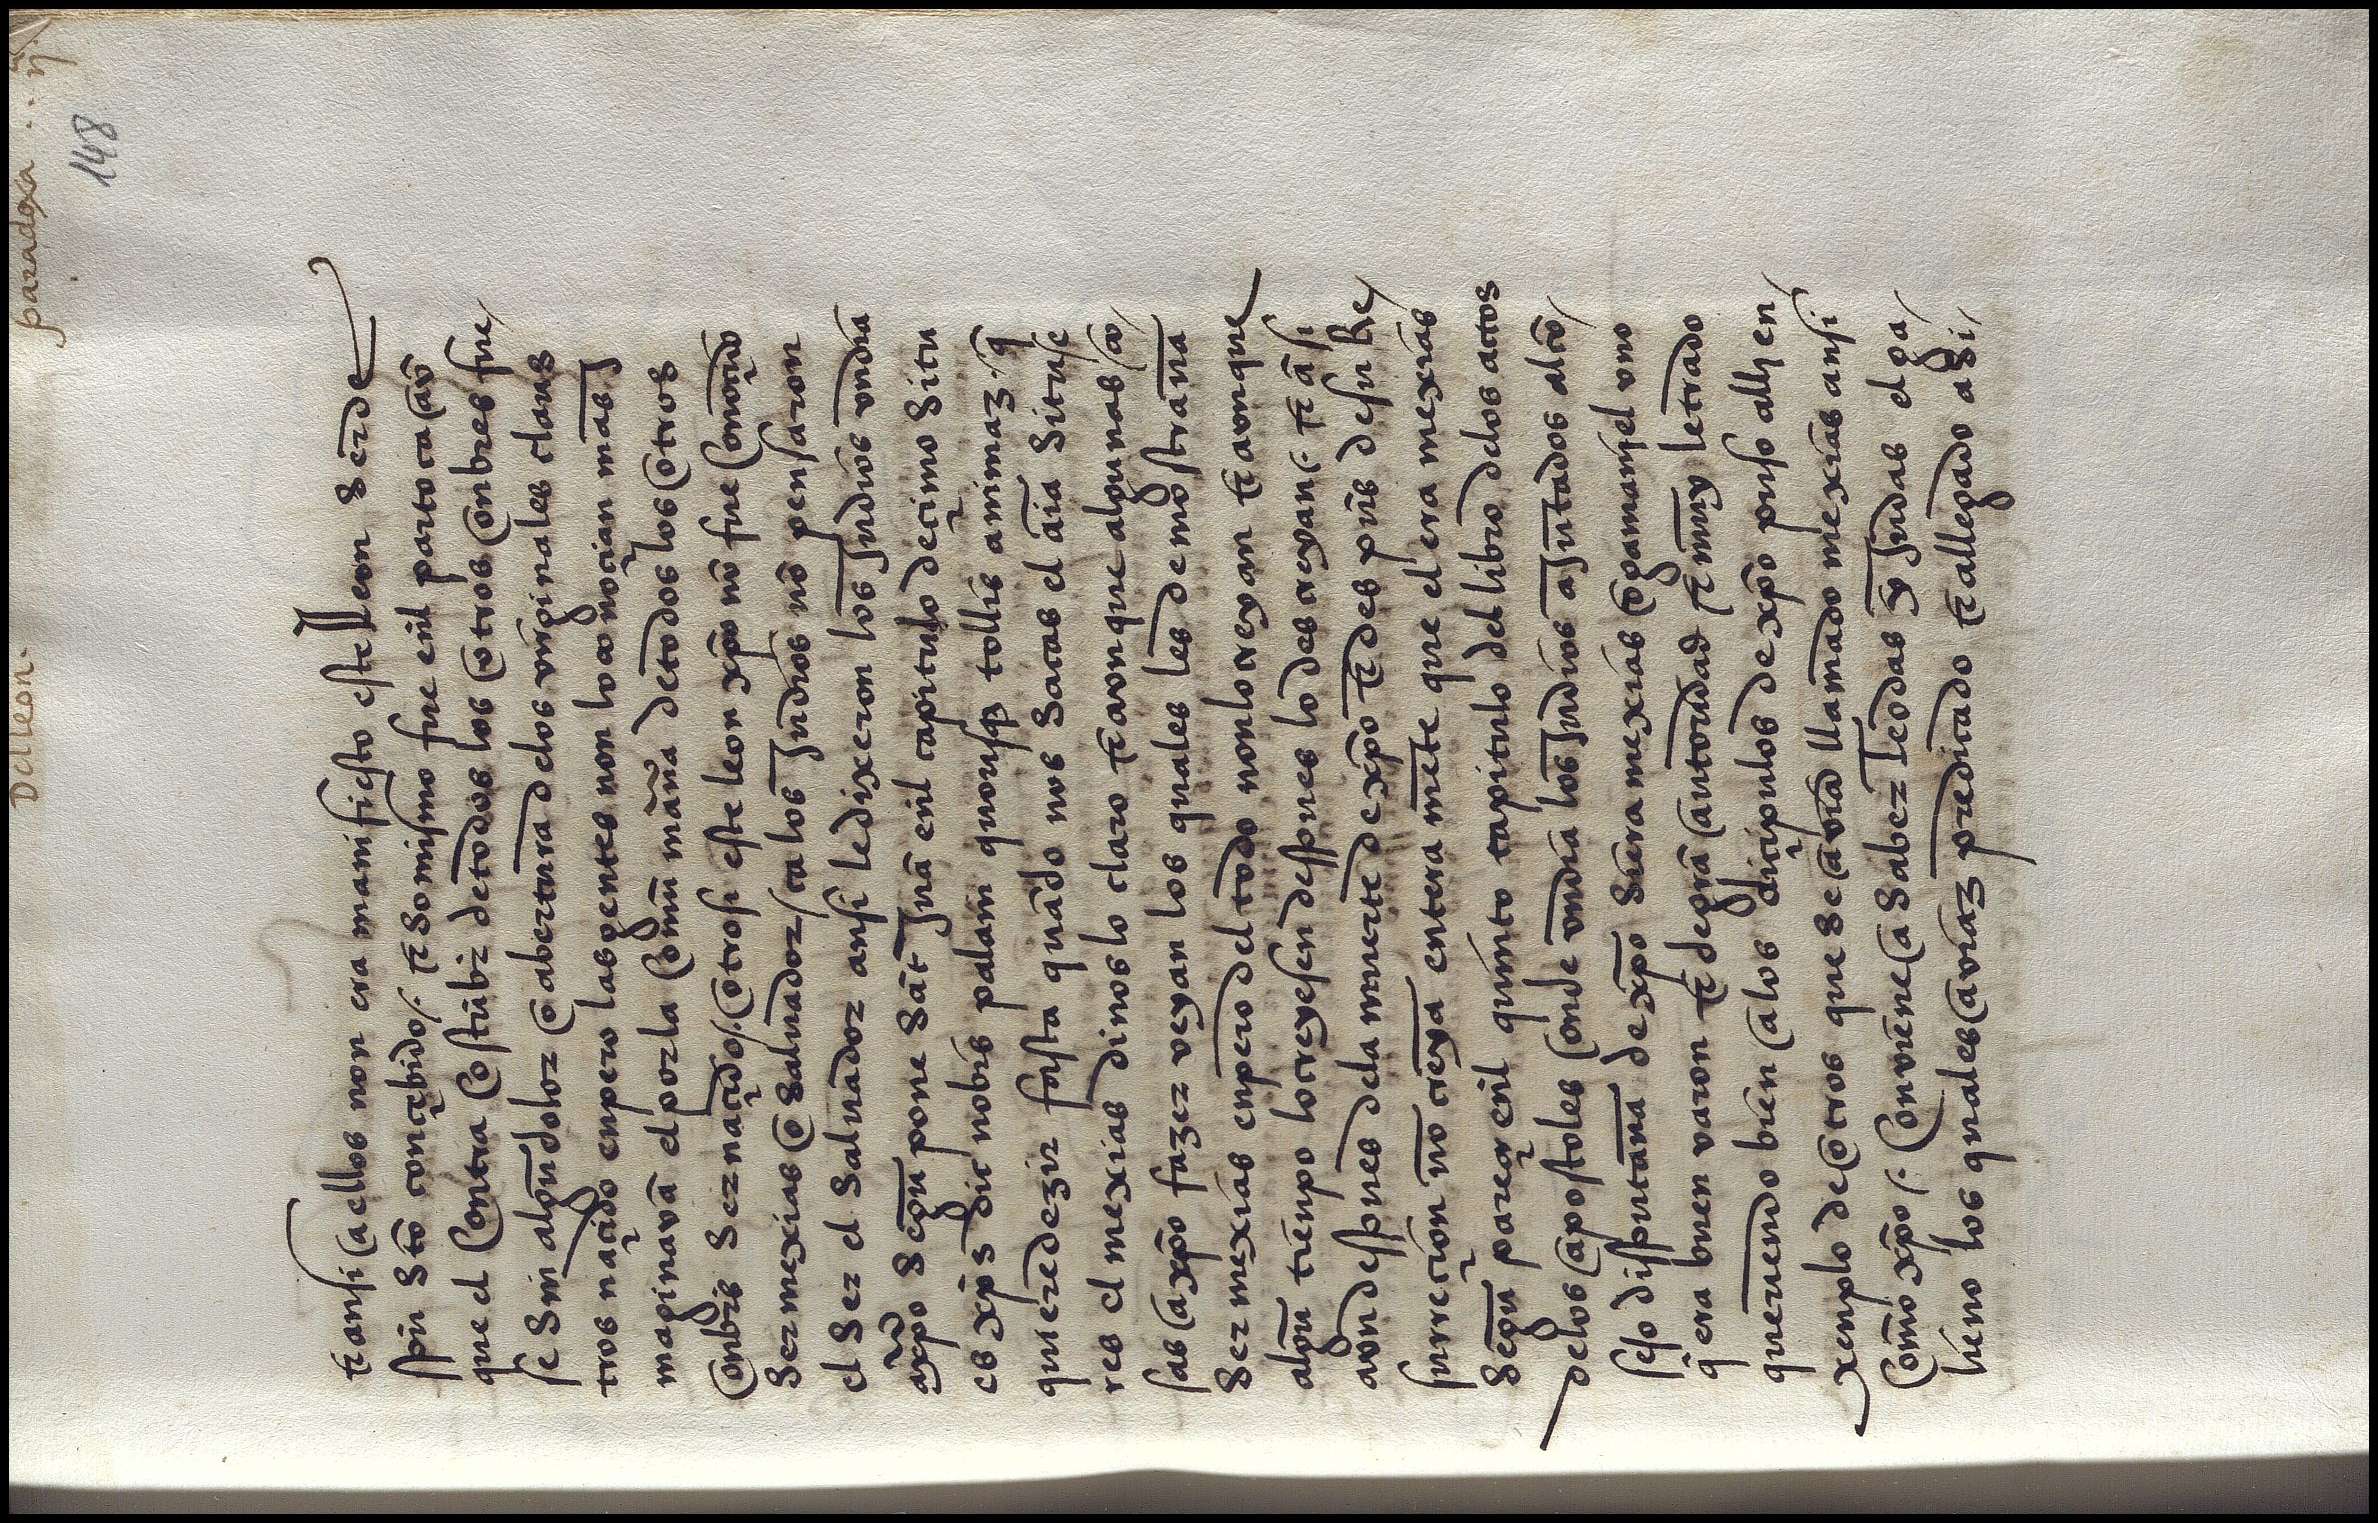 Del leon. paradoxa .. ij.
148
τ ansi a ellos non era manifiesto este leon Ser de
spũ Sto conçebido /. τ So mismo fue enl parto ca aũ
que el contra costũbr de todos los otros onbres fue /
se Sin algũn dolor o abertura de los virginales claus
tros naçido enpero las gentes non lo conoçian mas J
maginavã el por la comũ mãña de todos los otros
onbrs Ser naçido /. otrosi este leon xp̃o nõ fue conoçido
Ser mexias o Saluador / ca los Judios nõ pensaron
el Ser el Saluador ansi le dixeron los Judios vn dia
a xp̃o Segũn pone Sãt Juã enl capitulo deçimo Si tu
es xp̃s dic nobis palam quousqȝ tollis animaȝ / q̃
quiere dezir fasta quãdo nos Sacas el aĩa Si tu se
res el mexias dinos lo claro τ avnque algunas co /
sas a xp̃o fazer veyan los quales les demostravã
Ser mexias enpero del todo non lo creyan τ avnque
algũn tienpo lo creyesen despues lo descreyan /. τ asi
avn despues de la muerte de xp̃o τ despũs de su Re /
surreçion nõ creya entera mẽte que el era mexias
Segũn pareçe enl quinto capitulo del libro de los actos
de los apostoles onde vn dia los Judios ajuntados al cõ /
sejo disputavã de xp̃o Si era mexias o gamaniel vno
q̃ era buen varon τ de grã autoridad τ muy letrado
queriendo bien a los diçipulos de xp̃o puso alli en /
xenplo de otros que Se aviã llamado mexias ansi
como xp̃o /. Conviene a Saber teodas y Judas el ga /
lileno los quales aviaȝ predicado τ allegado a Si /